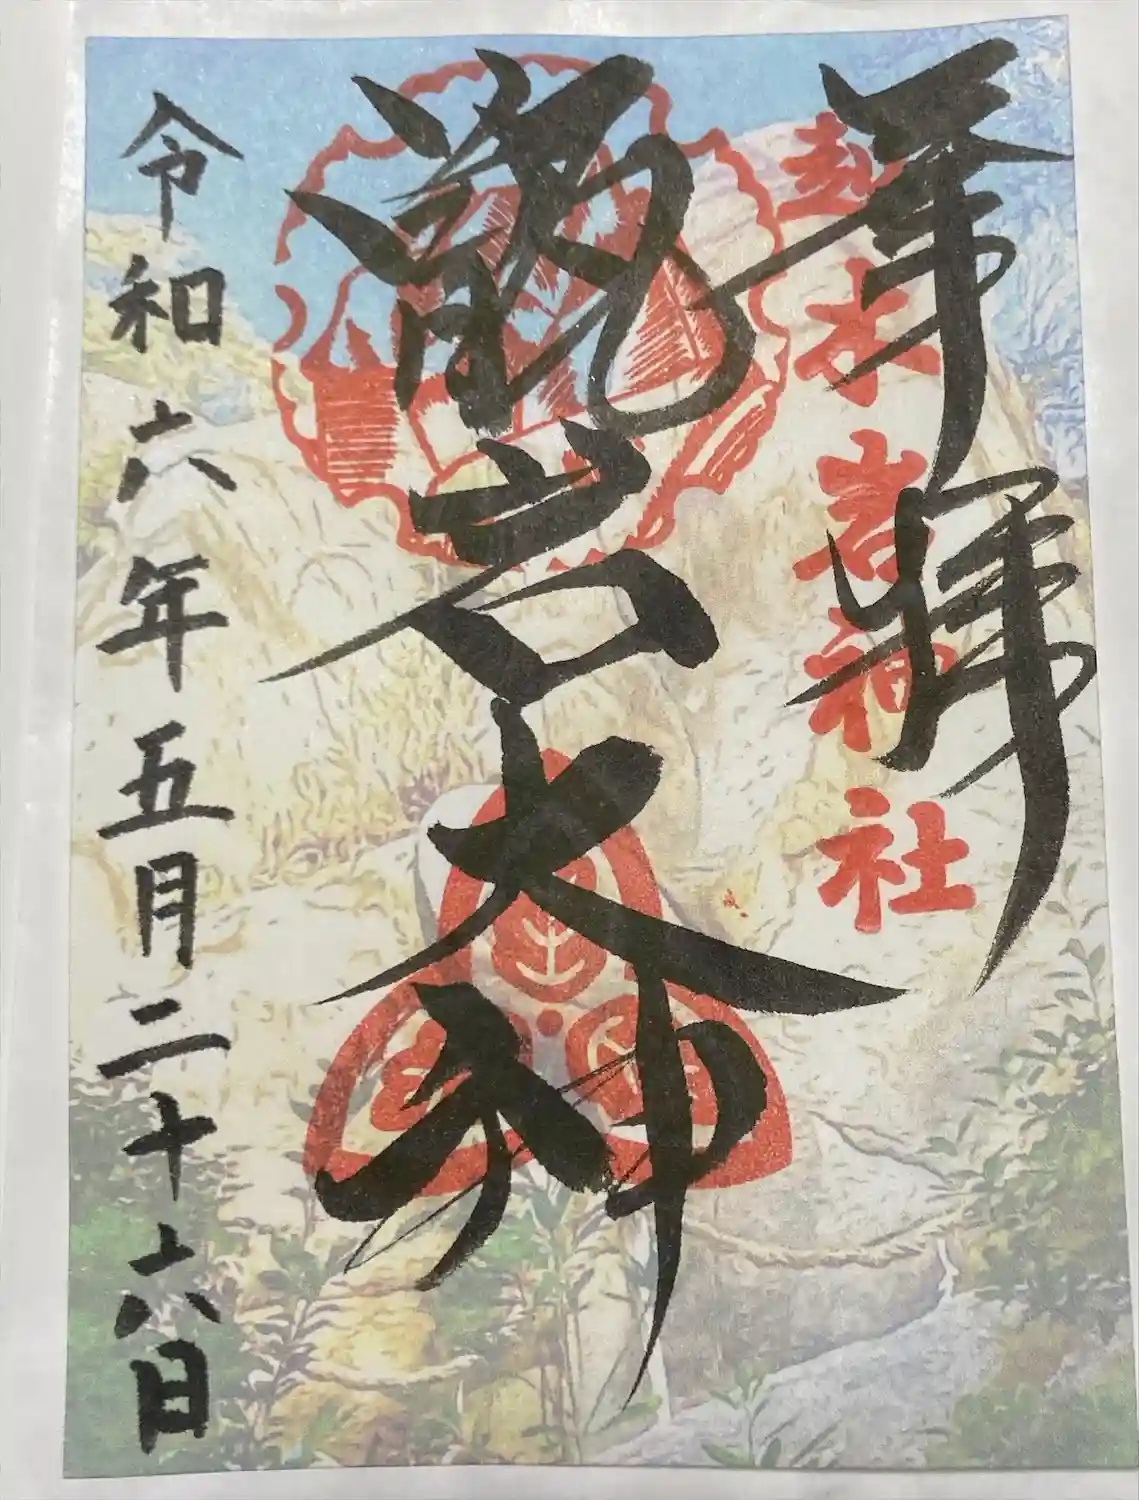 奉拝
越木岩神社
甑岩大神
令和六年五月二十六日